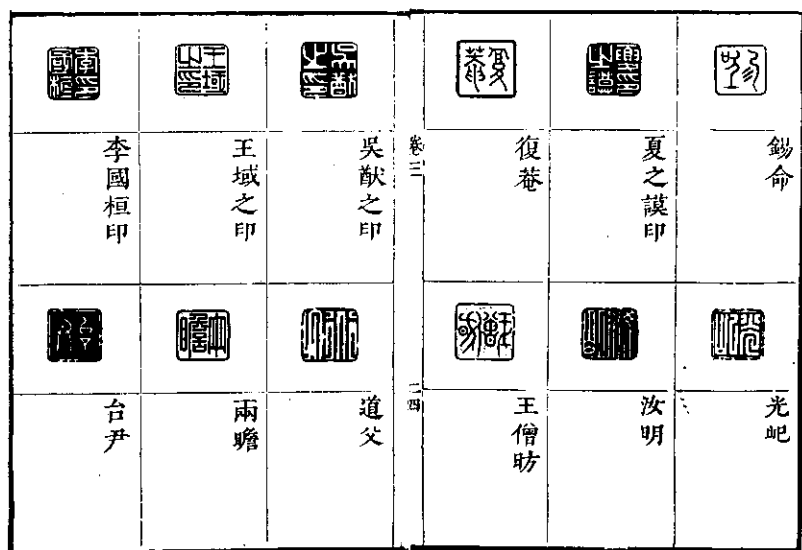 錫命
夏之謨印
復菴
光岊
汝明
王僧昉
卷三
二四
吳猷之印
王域之印
李國桓印
道父
雨瞻
台尹